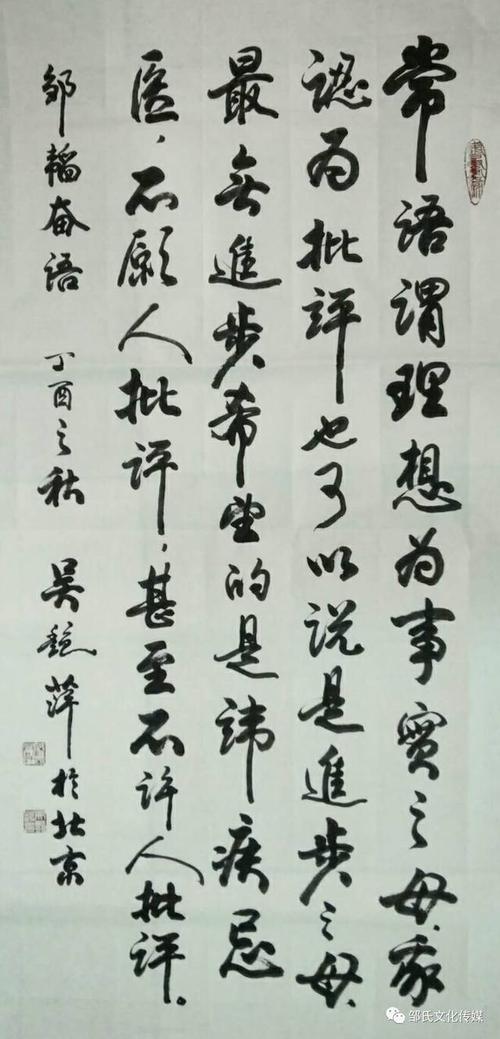 常语谓理想为事實之母，我
認为批評也可以说是進步之母，
最無進步希望的是諱疾忌
医，不願人批评，甚至不许人批评。
邹韬奋语 丁酉之秋 吴 萍於北京
邹氏文化传媒